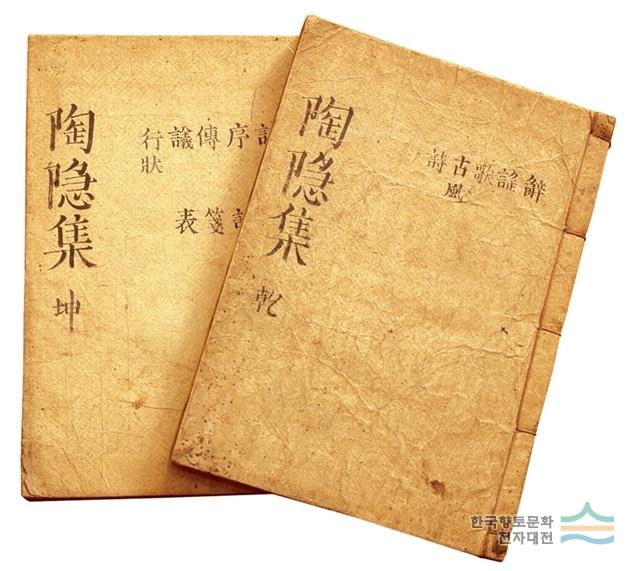 陶隐集
乾
辭謠歌古風詩
陶隐集
坤
序傳議行狀
箋表
한국향토문화
전자대전